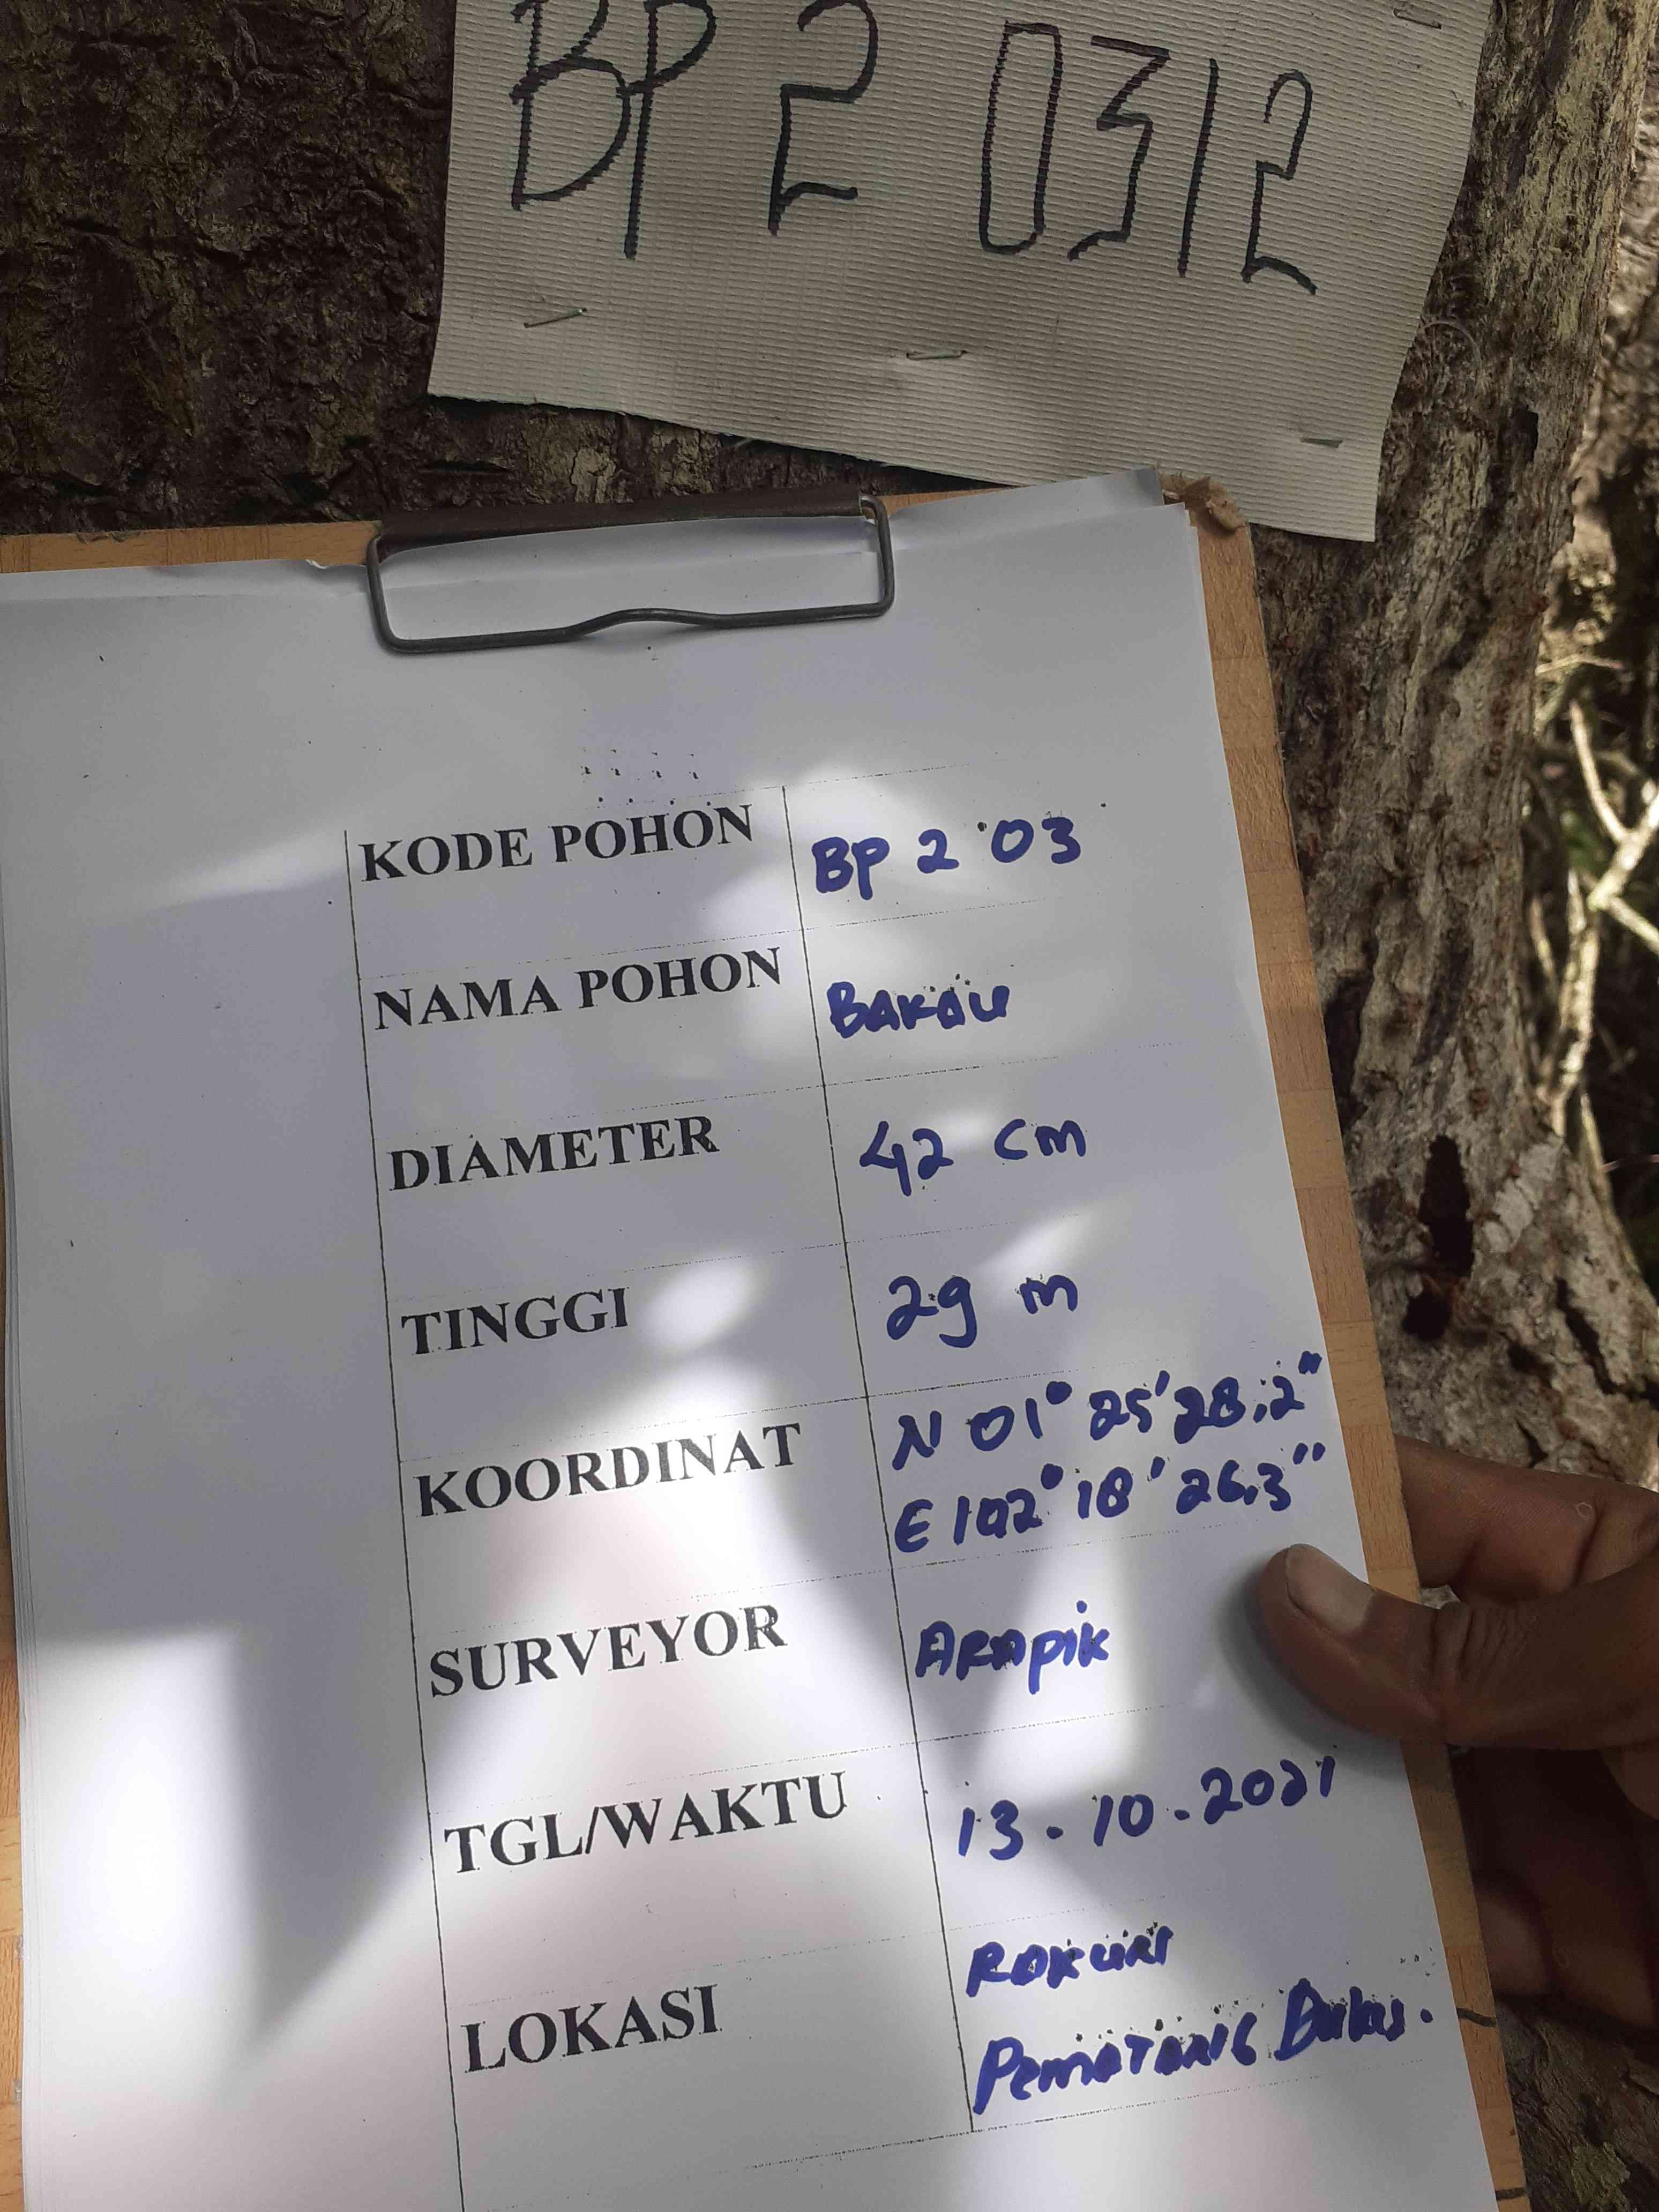 BP 2 0312
KODE POHON BP 2 03
NAMA POHON BAKAU
DIAMETER 42 cm
TINGGI 29 m
KOORDINAT N 01° 25' 28.2"
E 102° 18' 26.3"
SURVEYOR ARAPIK
TGL/WAKTU 13-10-2021
LOKASI
PEMATANG Duku.